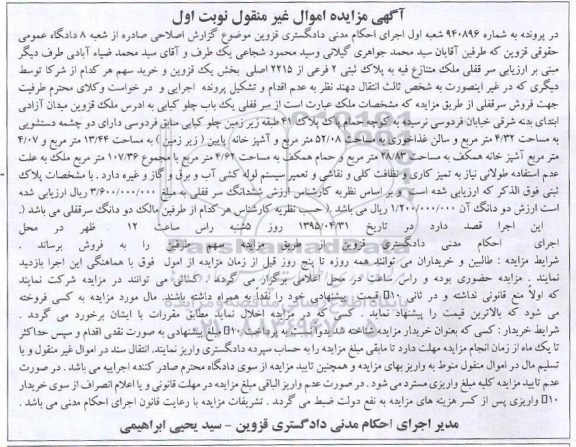 آگهی مزایده اموال غیر منقول نوبت اول
در پرونده به شماره ۹۴۰۸۹۶ شعبه اول اجرای احکام مدنی دادگستری قزوین موضوع گزارش اصلاحی صادره از شعبه ۸ دادگاه عمومی
حقوقی قزوین که طرفین آقایان سید محمد جواهری گیلانی وسید محمود شجاعی یک طرف و آقای سید محمد ضیاء آبادی طرف دیگر
مبنی بر ارزیابی سر قفلی ملک متنازع فیه به پلاک ثبتی ۲ فرعی از ۲۲۱۵ اصلی بخش یک قزوین و خرید سهم هر کدام از شرکا توسط
دیگری که در غیر اینصورت به شخص ثالث انتقال دهند نظر به عدم اقدام و تشکیل پرونده اجرایی و در خواست وکلای محترم طرفیت
جهت فروش سرقفلی از طریق مزایده که مشخصات ملک عبارت است از سر قفلی یک باب چلو کبابی به ادرس ملک قزوین میدان آزادی
ابتدای بدنه شرقی خیابان فردوسی نرسیده به کوچه حمام پاک پلاک ۴۱ طبقه زیر زمین چلو کبابی سابق فردوسی دارای دو چشمه دستشویی
به مساحت ۴/۳۲ متر مربع و سالن غذاخوری به مساحت ۵۲/۰۸ متر مربع و آشپز خانه پایین ( زیر زمین ) به مساحت ۱۳/۴۴ متر مربع و ۴/۰۷
متر مربع آشپز خانه همکف به مساحت ۲۸/۸۳ متر مربع و حمام همکف به مساحت ۴/۶۲ متر مربع با مجموع ۱۰۷/۳۶ متر مربع ملک به علت
عدم استفاده طولانی نیاز به تمیز کاری و نظافت کلی و نقاشی و تعمیر سیستم لوله کشی آب و برق و گاز و غیره دارد . با مشخصات پلاک
ثبتی فوق الذکر که ارزیابی شده است و بر اساس نظریه کارشناس ارزش ششدانگ سر قفلی به مبلغ ۳/۶۰۰/۰۰۰/۰۰۰ ریال ارزیابی شده
است ارزش دو دانگ آن ۱/۲۰۰/۰۰۰/۰۰۰ ریال می باشد .( حسب نظریه کارشناس هر کدام از طرفین مالک دو دانگ سرقفلی می باشد (.
این اجرا قصد دارد در تاریخ ۱۳۹۵/۰۴/۳۱ روز ۵شنبه راس ساعت ۱۲ ظهر در محل
اجرای احکام مدنی دادگستری قزوین از طریق مزایده سهم طرفین را به فروش برساند .
شرایط مزایده : طالبین و خریداران می توانند همه روزه تا پنج روز قبل از زمان مزایده از اموال فوق با هماهنگی این اجرا بازدید
نمایند . مزایده حضوری بوده و راس ساعت در محل اعلامی برگزار می گردد . کسانی می توانند در مزایده شرکت نمایند
که اولاً منع قانونی نداشته و در ثانی ۱۰٪ قیمت پیشنهادی خود را نقداً به همراه داشته باشند. مال مورد مزایده به کسی فروخته
می شود که بالاترین قیمت را پیشنهاد نماید . کسی که در مزایده اخلال نماید مطابق مقررات با ایشان برخورد می گردد .
شرایط خریدار : کسی که بعنوان خریدار مزایده شناخته شد می بایست به پرداخت ۱۰٪ مبلغ پیشنهادی به صورت نقدی اقدام و سپس حداکثر
تا یک ماه از زمان انجام مزایده مهلت دارد تا مابقی مبلغ مزایده را به حساب سپرده دادگستری واریز نمایند. انتقال سند در اموال غیر منقول و یا
تسلیم مال در اموال منقول منوط به واریز بهای مزایده و همچنین تایید مزایده از سوی دادگاه محترم صادر کننده اجراییه می باشد . در صورت
عدم تایید مزایده کلیه مبلغ واریزی مسترد می شود . در صورت عدم واریز الباقی مبلغ مزایده در مهلت قانونی و یا اعلام انصراف از سوی خریدار
۱۰٪ واریزی پس از کسر هزینه های مزایده به نفع دولت ضبط می گردد . تشریفات مزایده با رعایت قانون اجرای احکام مدنی می باشد .
مدیر اجرای احکام مدنی دادگستری قزوین – سید یحیی ابراهیمی